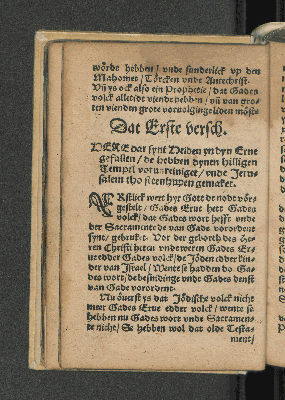 wörde hebben / vnde sunderlick vp den
Mahomet / Törcken vnde Antechrist.
Vñ ys ock also ein Prophetie / dat Gades
volck alletidt viende hebben / vñ van gro-
ten vienden grote voruolginge liden möste
Dat Erste versch.
HERE dat synt Heiden yn dyn Erue
gefallen / de hebben dynen hilligen
Tempel vorunreiniget / vnde Jeru-
salem tho steenhupen gemaket.
ERstlick wert hyr Gott de nodt vör-
gestelt / Gades Erue hett Gades
volck / dat Gades wort hefft vnde
der Sacramente de van Gade vorordent
synt / gebruket. Vor der gebordt des He-
ren Christi heten vnde weren Gades Er-
ue edder Gades volck / de Jöden edder kin-
der van Israel / Wente se hadden do Ga-
des wort / de besnidinge vnde Gades denst
van Gade vorordent.
Nu öuerst ys dat Jödische volck nicht
meer Gades Erue edder volck / wente se
hebben nu Gades wort vnde Sacramen-
te nicht / Se hebben wol dat olde Testa-
ment /